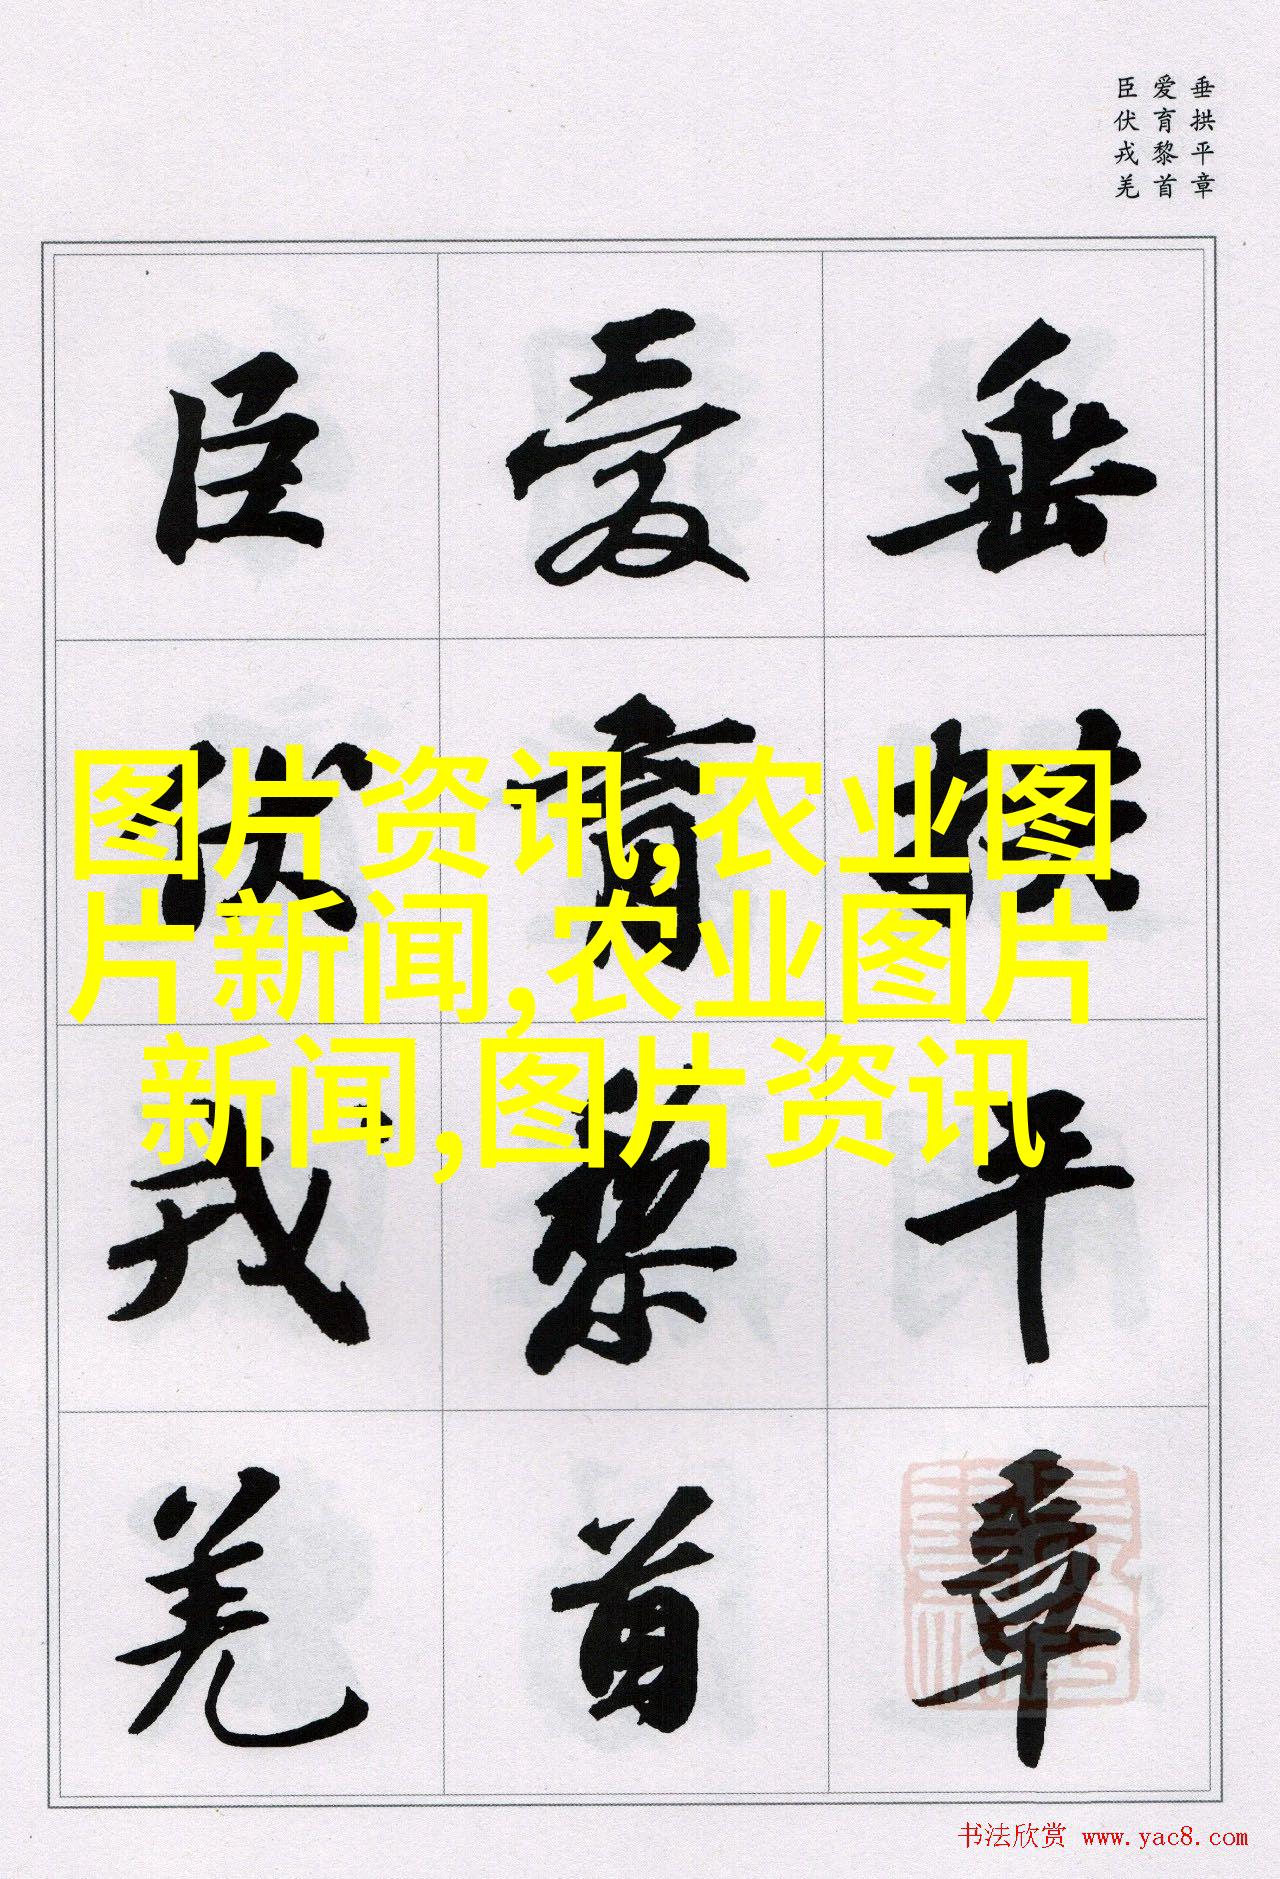 垂拱平章
爱育黎首
臣伏戎羌
垂拱平章
爱育黎首
臣伏戎羌
图片资讯,农业图
片新闻,农业图片
新闻,图片资讯
书法欣赏 www.yac8.com